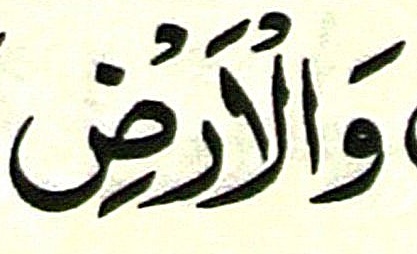 وَالْأَرْضِ